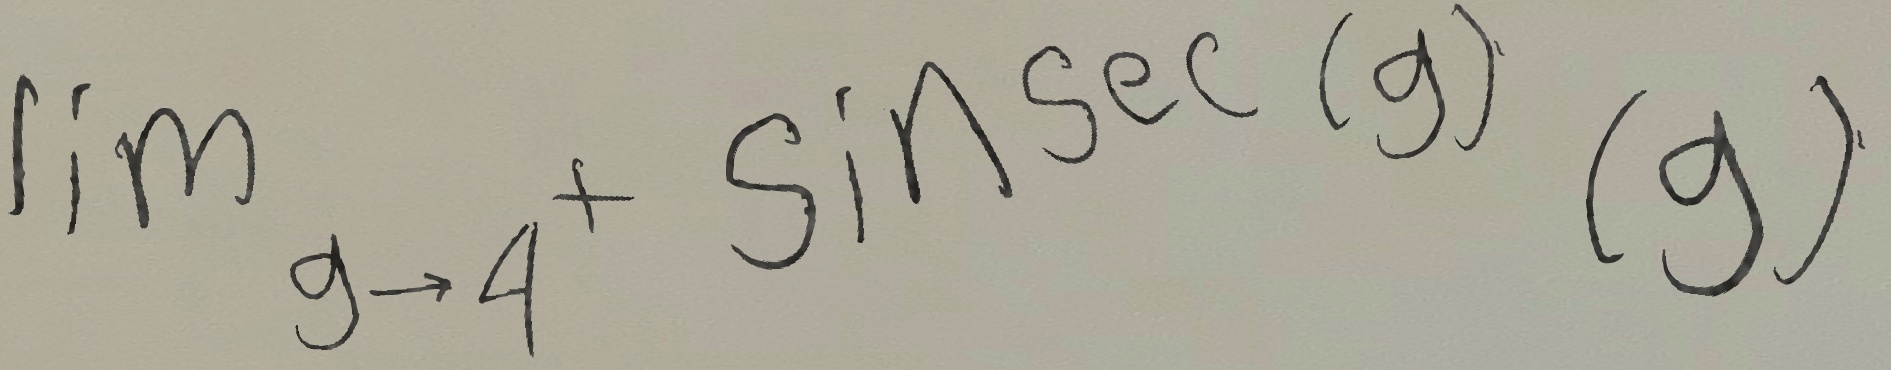 lim_{g→4^+} sin^{sec(g)}(g)